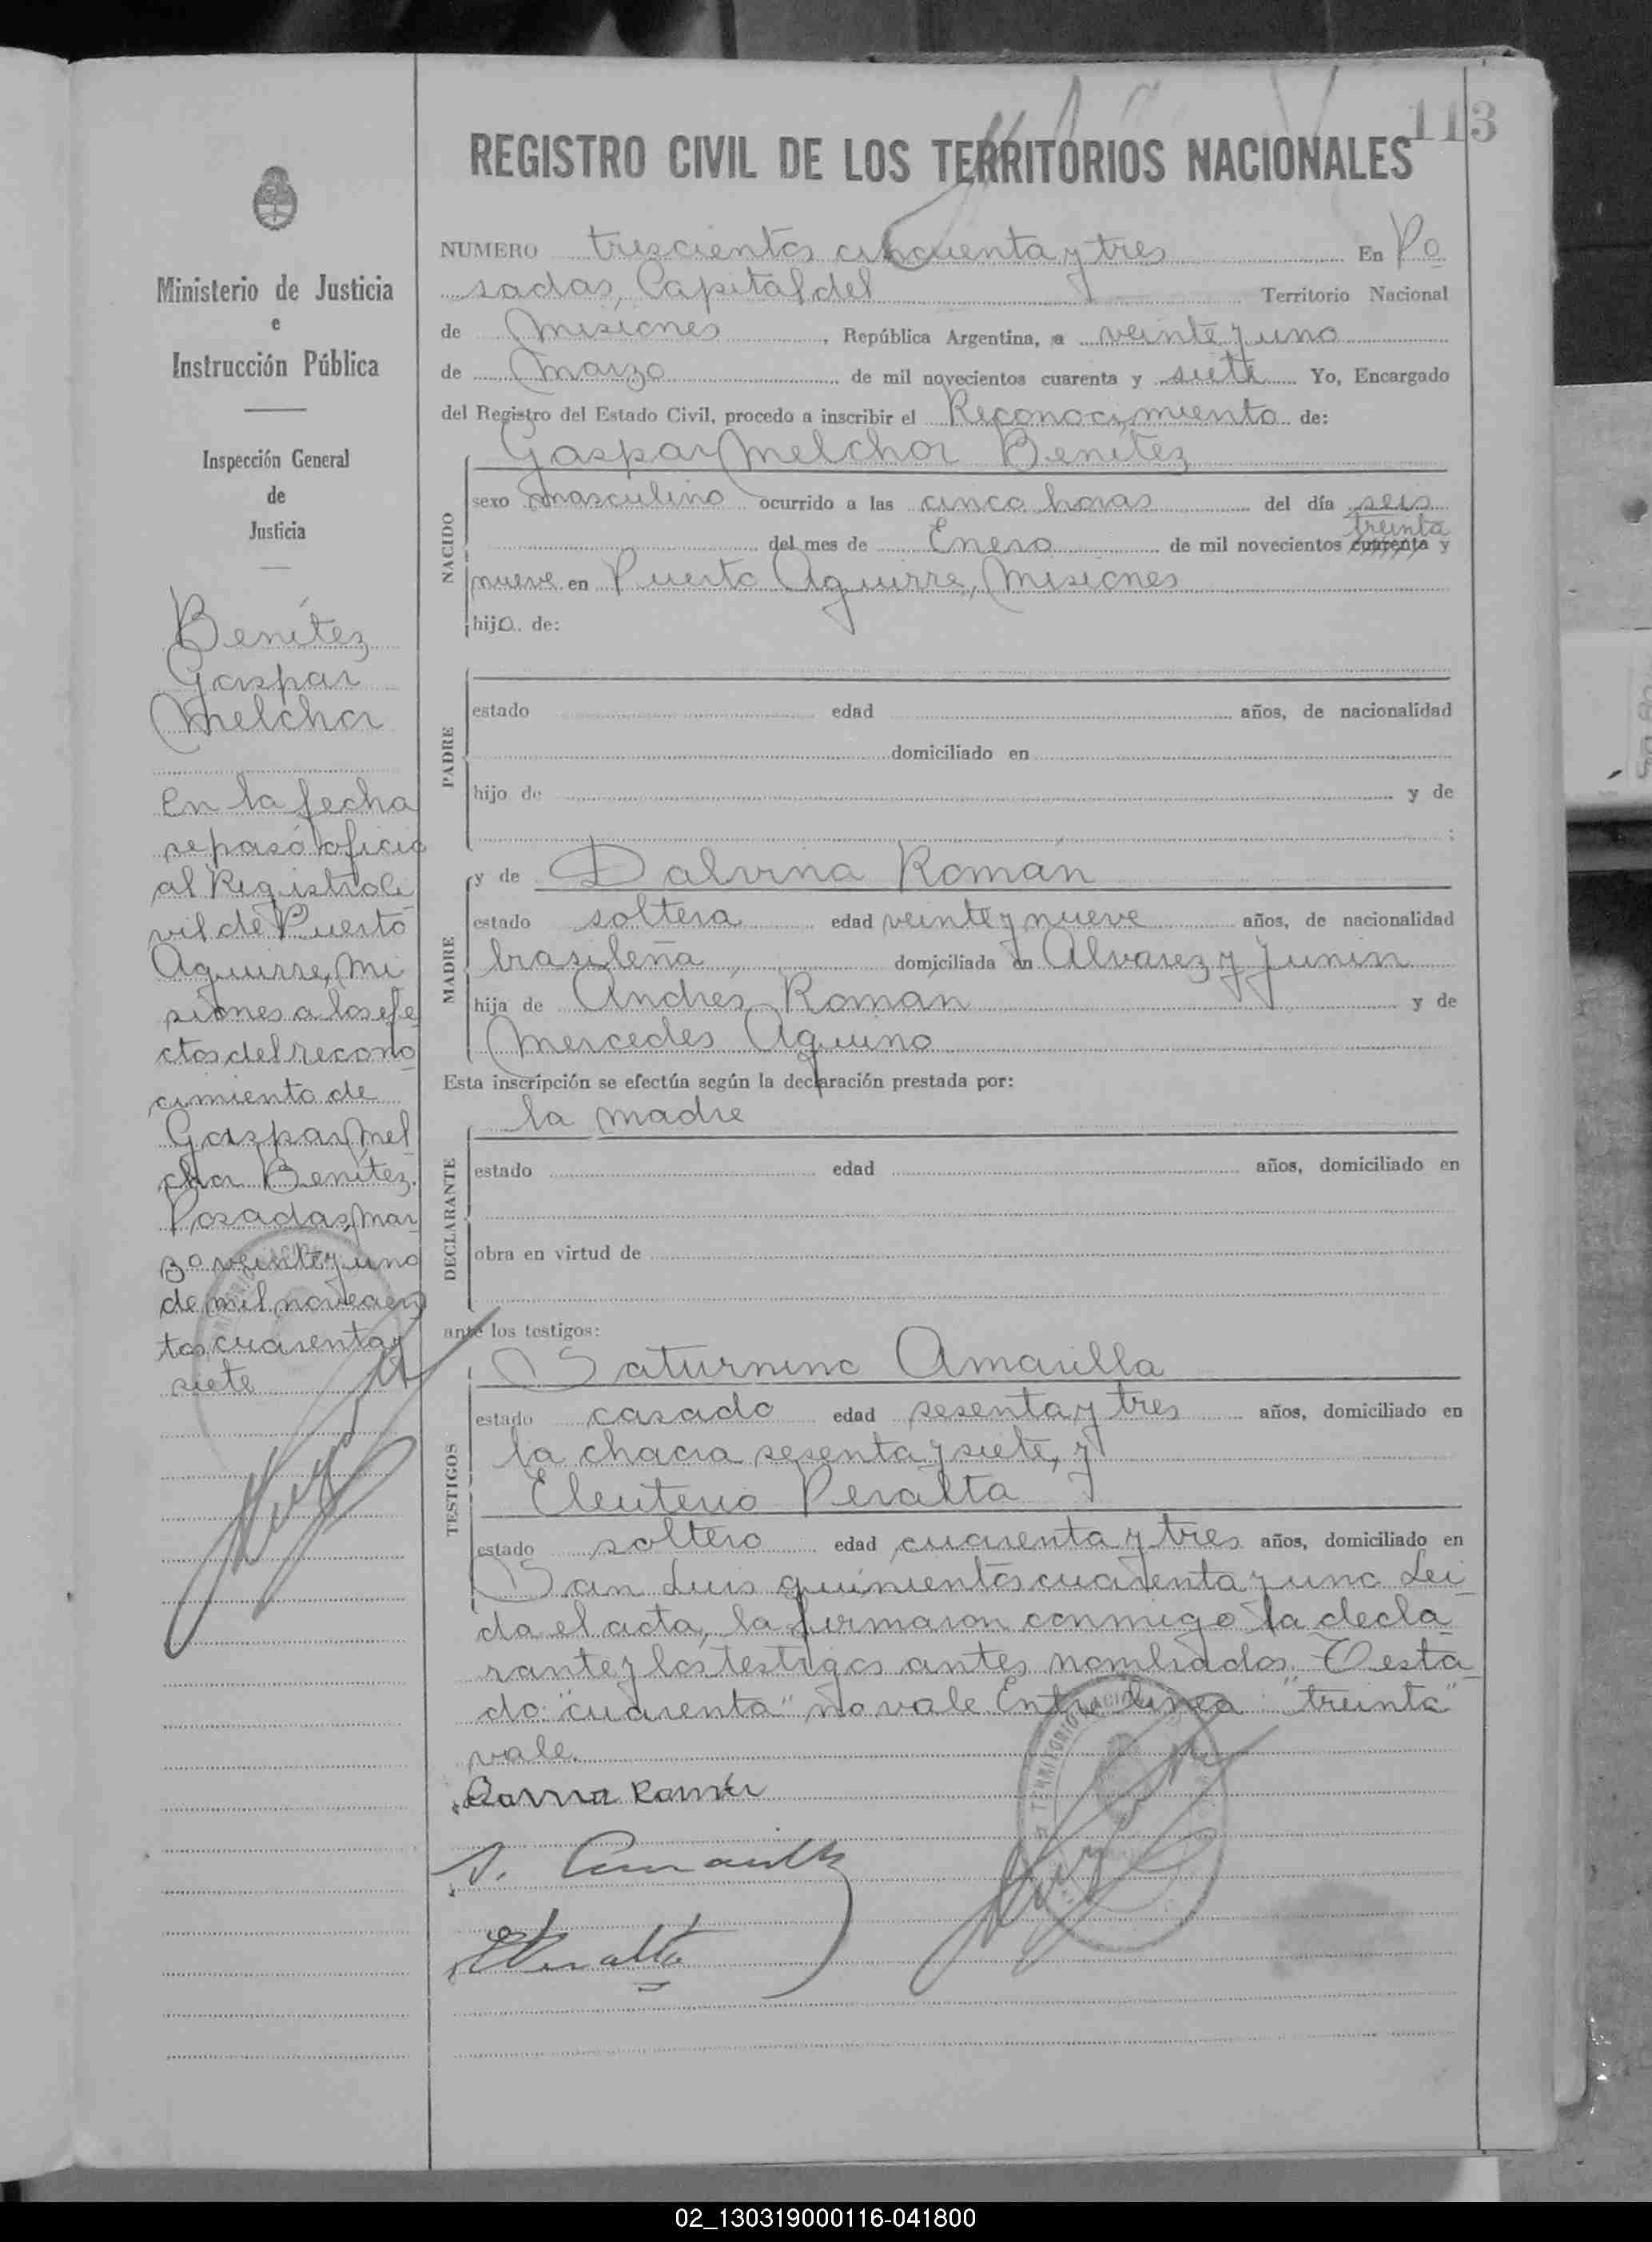 113
REGISTRO CIVIL DE LOS TERRITORIOS NACIONALES
Ministerio de Justicia
e
Instrucción Pública
Inspección General
de
Justicia
Benítez
Gaspar
Melchor
En la fecha
se pasó oficio
al Registro Ci
vil de Puerto
Aguirre, Mi
siones a los efe
ctos del recono
cimiento de
Gaspar Mel
chor Benítez.
Posadas, mar
zo veinte y uno
de mil novecien
tos cuarenta y
siete
NUMERO trescientos cincuenta y tres En Po
sadas, Capital del Territorio Nacional
de Misiones, República Argentina, a veinte y uno
de Marzo de mil novecientos cuarenta y siete Yo, Encargado
del Registro del Estado Civil, procedo a inscribir el Reconocimiento de:
Gaspar Melchor Benítez
NACIDO
sexo masculino ocurrido a las cinco horas del día seis
treinta
del mes de Enero de mil novecientos cuarenta y
nueve en Puerto Aguirre, Misiones
hijo de:
PADRE
estado edad años, de nacionalidad
domiciliado en
hijo de y de
;
MADRE
y de Dalvina Román
estado soltera edad veinte y nueve años, de nacionalidad
brasileña, domiciliada en Alvarez y Junin
hija de Andrés Román y de
Mercedes Aquino
Esta inscripción se efectúa según la declaración prestada por:
la madre
DECLARANTE
estado edad años, domiciliado en
obra en virtud de
ante los testigos:
TESTIGOS
Saturnino Amarilla
estado casado edad sesenta y tres años, domiciliado en
la chacra sesenta y siete, y
Eleuterio Peralta
estado soltero edad cuarenta y tres años, domiciliado en
San Luis quinientos cuarenta y uno Lei
da el acta, la firmaron conmigo la decla
rante y los testigos antes nombrados. Testa
do: "cuarenta" no vale. Entre línea: "treinta"
vale.
Román
S. Amarilla
E Peralta
TERRITORIO NACIONAL
02_130319000116-041800